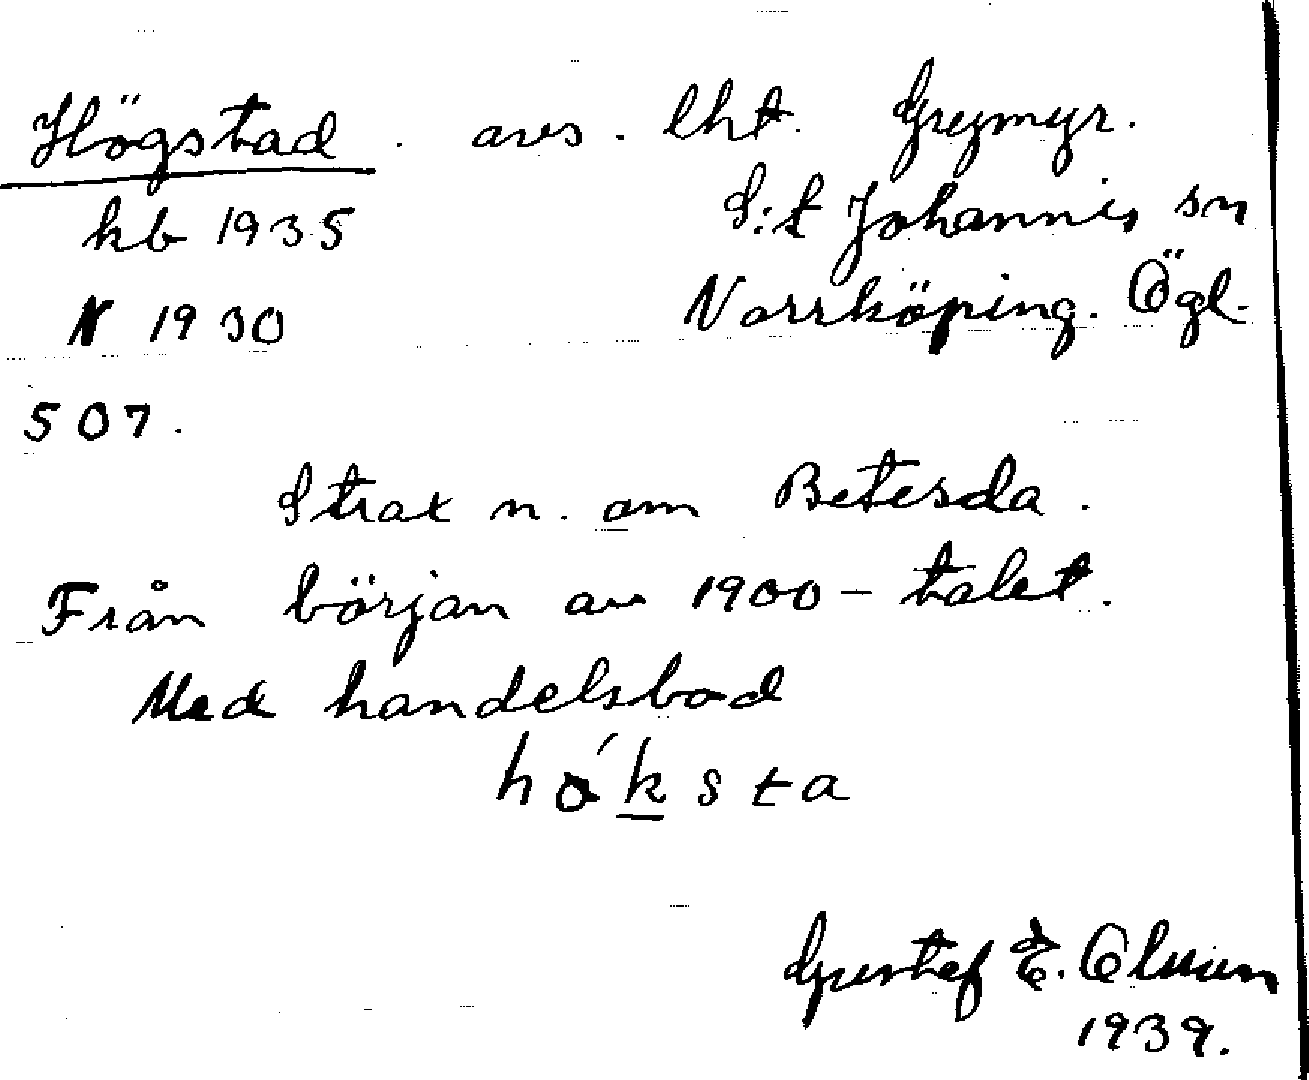 Högstad. avs. lht. Grymyr.
kb 1935 S:t Johannis sn
N 1930 Norrköping. Ögl.
507.
Strax n. om Betesda.
Från början av 1900-talet.
Med handelsbod
hö́ksta
Gustef E. Olsson
1939.